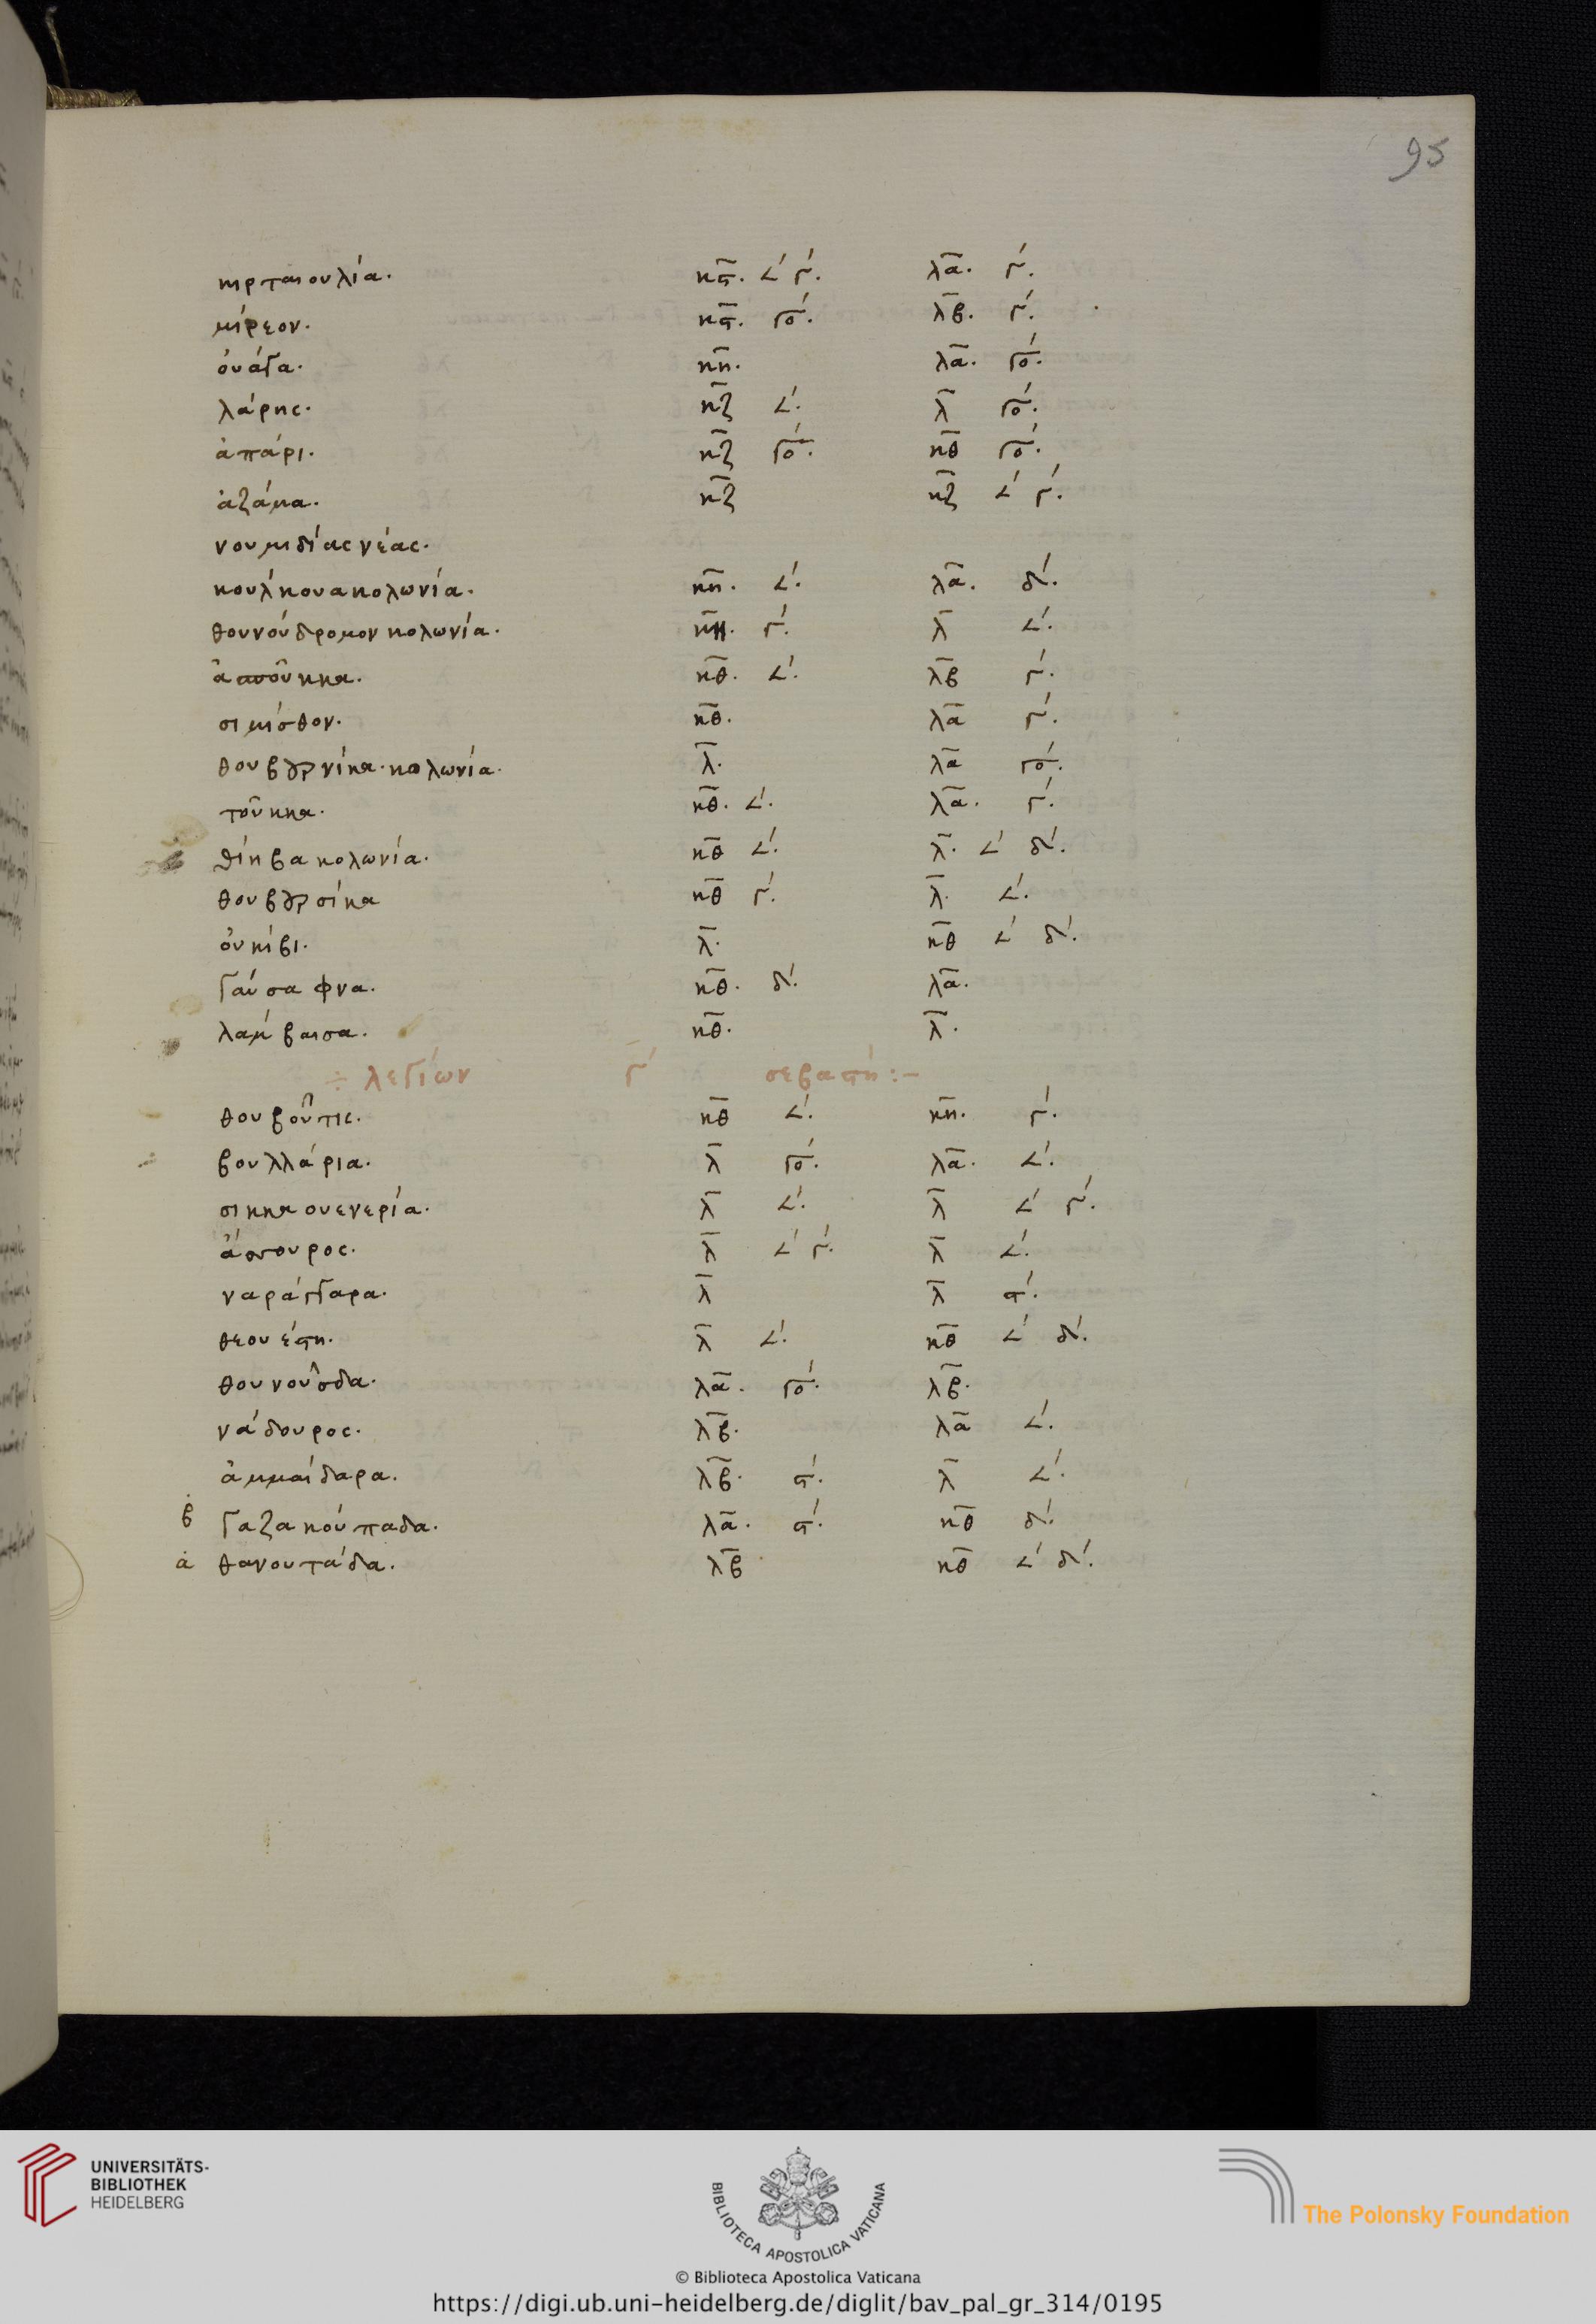 95
κιρταιουλία. κϛ. 𐅵 γ. λα. γ.
μίρεον. κϛ. γο. λβ. γ.
ὀυάγα. κη. λα. γο.
λάρης. κζ 𐅵. λ γο.
ἀπάρι. κζ γο. κθ γο.
ἀζάμα. κζ κζ 𐅵 γ.
νουμιδίας νέας.
κουλκουα κολωνία. κη. 𐅵. λα. δ.
θουνούδρομον κολωνία. κη. γ. λ 𐅵.
κθ. 𐅵. λβ γ.
σιμίσθον. κθ. λα γ.
θουβουρνίκα. κολωνία. λ. λα γο.
τοῦκκα. κθ. 𐅵. λα. γ.
θίηβα κολωνία. κθ 𐅵. λ. 𐅵 δ.
θουβουρσίκα κθ γ. λ. 𐅵.
ὀυκίβι. λ. κθ 𐅵 δ.
γαύσαφνα. κθ. δ. λα.
λαμβαισα. κθ. λ.
÷ λεγίων γ σεβαστή:–
θουβοῦτις. κθ 𐅵. κη. γ.
βουλλάρια. λ γο. λα. 𐅵.
σικκα ουενερία. λ 𐅵. λ 𐅵 γ.
ἄσσουρος. λ 𐅵 γ. λ 𐅵.
ναράγγαρα. λ λ ϛ.
θεουέστη. λ 𐅵. κθ 𐅵 δ.
θουνοῦσδα. λα. γο. λβ.
νάδουρος. λβ. λα 𐅵.
ἀμμαίδαρα. λβ. ϛ. λ 𐅵.
β γαζακούπαδα. λα. ϛ. κθ δ.
α θανουτάδα. λβ κθ 𐅵 δ.
UNIVERSITÄTS-
BIBLIOTHEK
HEIDELBERG
BIBLIOTECA APOSTOLICA VATICANA
The Polonsky Foundation
© Biblioteca Apostolica Vaticana
https://digi.ub.uni-heidelberg.de/diglit/bav_pal_gr_314/0195